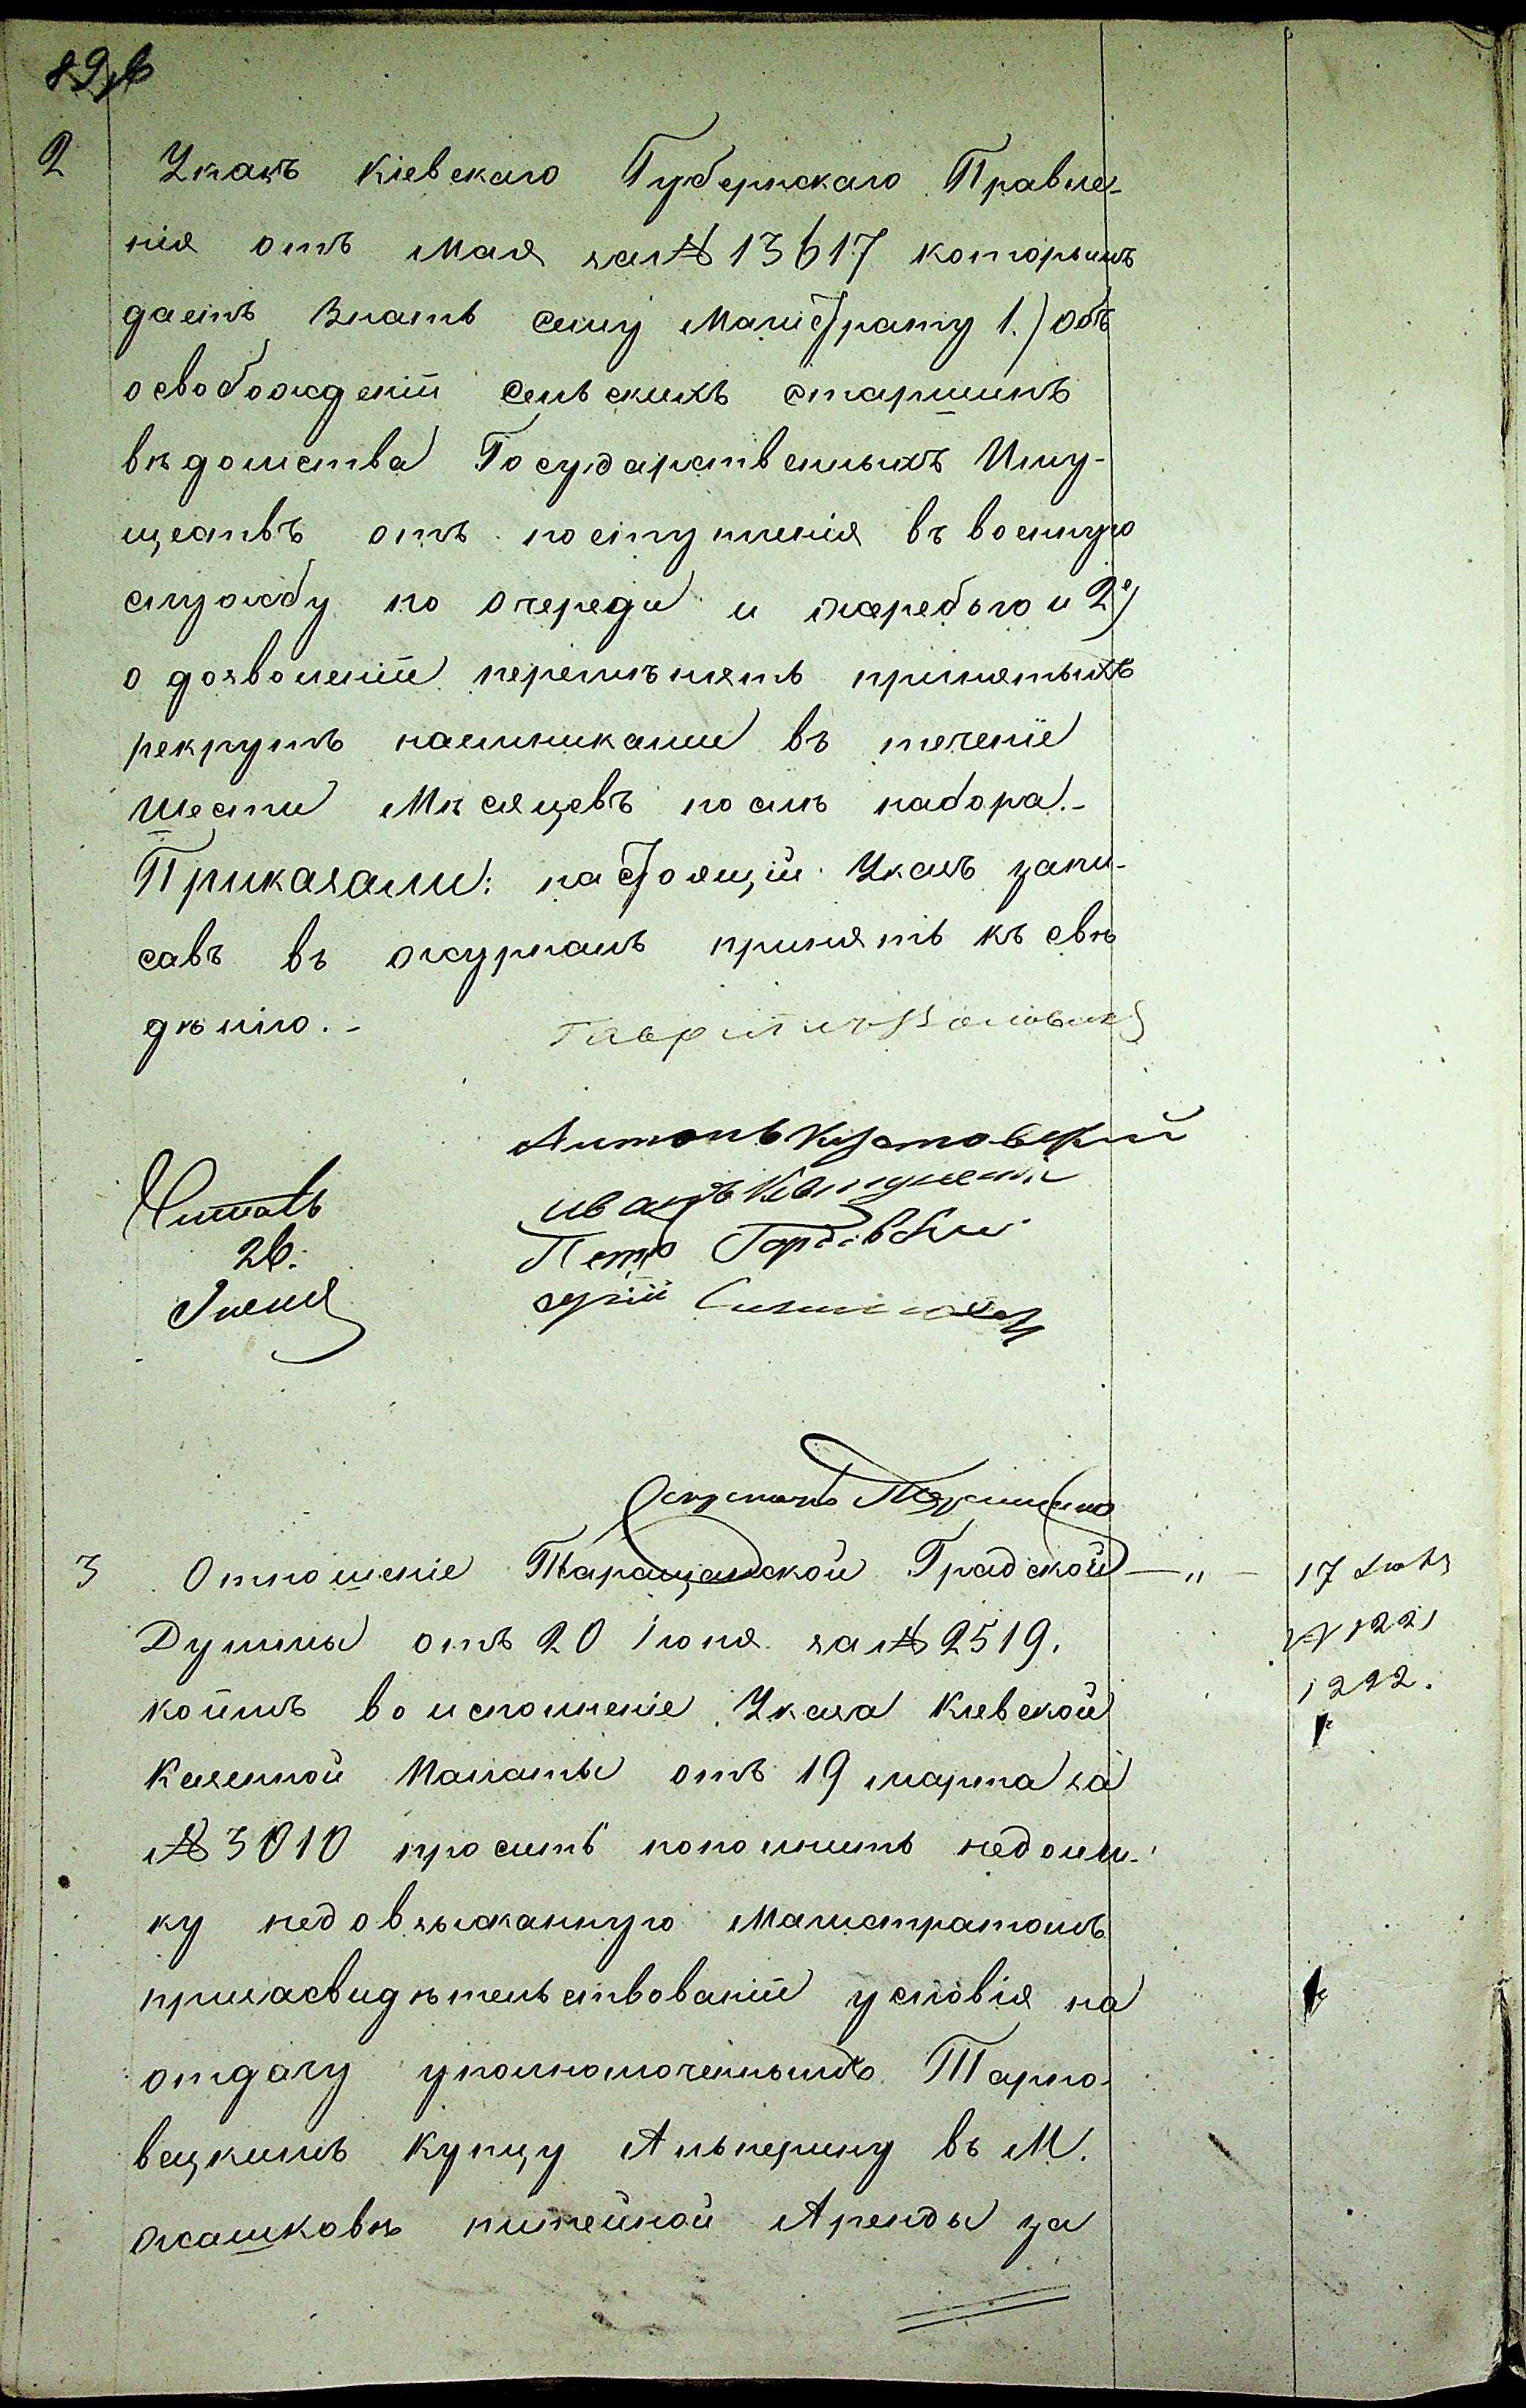 2 Указъ Кіевскаго Губернскаго Правле-
нія отъ Мая за № 13617 которымъ
даетъ знать сему Магистрату 1.) объ
освобожденіи сельскихъ старшинъ
вѣдомства Государственныхъ Иму-
ществъ отъ поступленія въ военную
службу по очереди и жеребью и 2е)
о дозволеніи перемѣнять принятыхъ
рекрутъ наемниками въ теченіе
шести Мѣсяцевъ послѣ набора.-
Приказали: настоящій Указъ запи-
савъ въ журналъ принять къ свѣ
дѣнію.-
Антонъ
Иванъ
Читалъ
26.
Іюня
Петръ
3 Отношеніе Таращанской Градской — „ —
Думы отъ 20 Іюня за № 2519.
коимъ во исполненіе Указа Кіевской
Казенной Палаты отъ 19 марта за
№ 3010 проситъ пополнить недоим-
ку недовзысканную Магистратомъ
призасвидѣтельствованіи условія на
отдачу уполномоченнымъ Тарно-
вецкимъ Купцу Альперину въ М.
Жашковѣ питейной Аренды за
17 Іюля
№ 1221
1222.